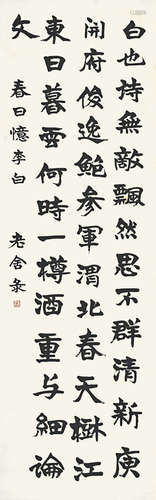 白也詩無敵飄然思不群清新庾
開府俊逸鮑参軍渭北春天樹江
東日暮雲何時一樽酒重与細論
文
春日憶李白 老舍彔